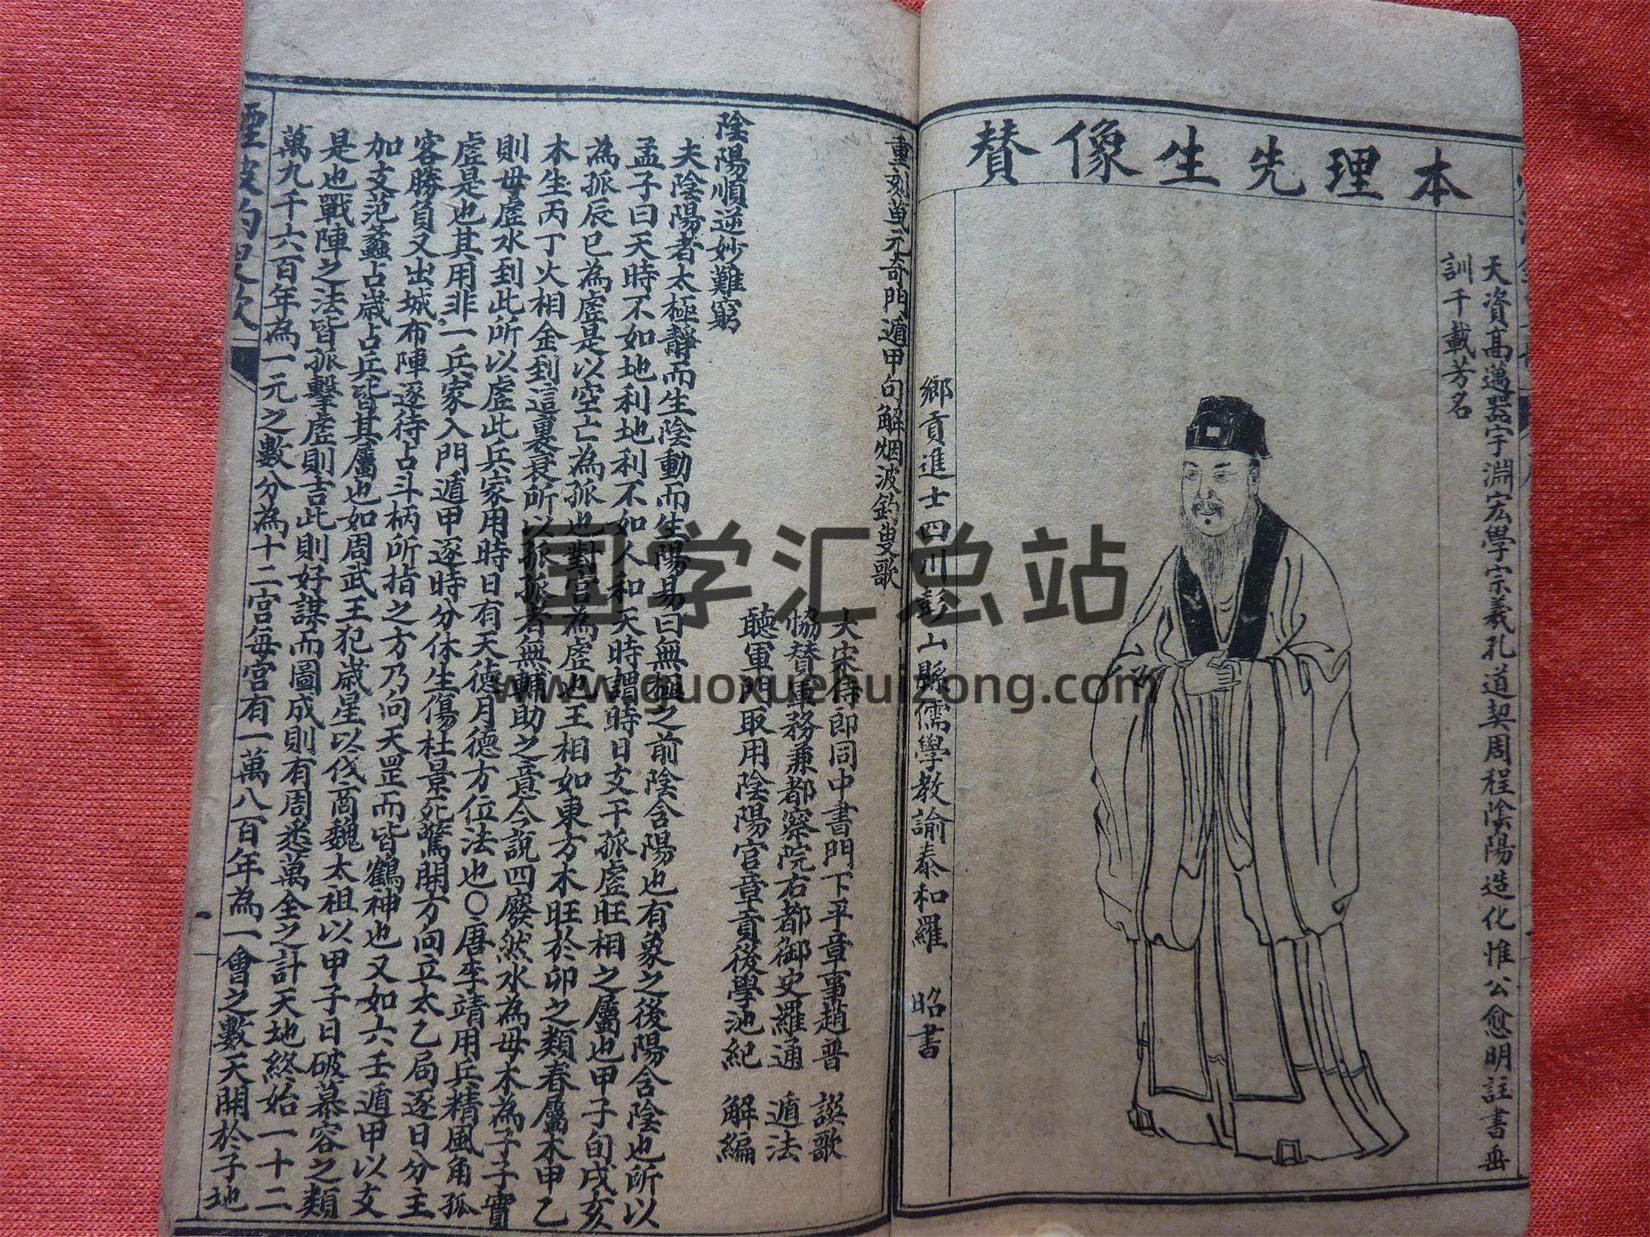 本理先生像贊
天資高邁器宇淵宏學宗義孔道契周程陰陽造化惟公愈明註書垂
訓千載芳名
鄉貢進士四川彭山縣儒學教諭泰和羅 昭書
重刻萬元奇門遁甲句解烟波釣叟歌
大宋侍郎同中書門下平章事趙普 譔歌
協贊軍務兼都察院右都御史羅通 遁法
聽軍門取用陰陽官章貢後學池紀 解編
陰陽順逆妙難窮
夫陰陽者太極靜而生陰動而生陽易曰無極之前陰含陽也有象之後陽含陰也所以
孟子曰天時不如地利地利不如人和天時謂時日支干孤虛旺相之屬也甲子旬戌亥
為孤辰巳為虛是以空亡為孤也對宮為虛也王相如東方木旺於卯之類春屬木甲乙
木生丙丁火相金到這裏衰所以孤孤者無輔助之意今說四廢然水為母木為子子實
則母虛水到此所以虛此兵家用時日有天德月德方位法也〇唐李靖用兵精風角孤
虛是也其用非一兵家入門遁甲逐時分休生傷杜景死驚開方向立太乙局逐日分主
客勝負又出城布陣逐待占斗柄所指之方乃向天罡而皆鶴神也又如六壬遁甲以支
加支范蠡占歲占兵皆其屬也如周武王犯歲星以伐商魏太祖以甲子日破慕容之類
是也戰陣之法皆孤擊虛則吉此則好謀而圖成則有周悉萬全之計天地終始一十二
萬九千六百年為一元之數分為十二宮每宮有一萬八百年為一會之數天開於子地
煙波釣叟歌
国学汇总站
www.guoxuehuizong.com